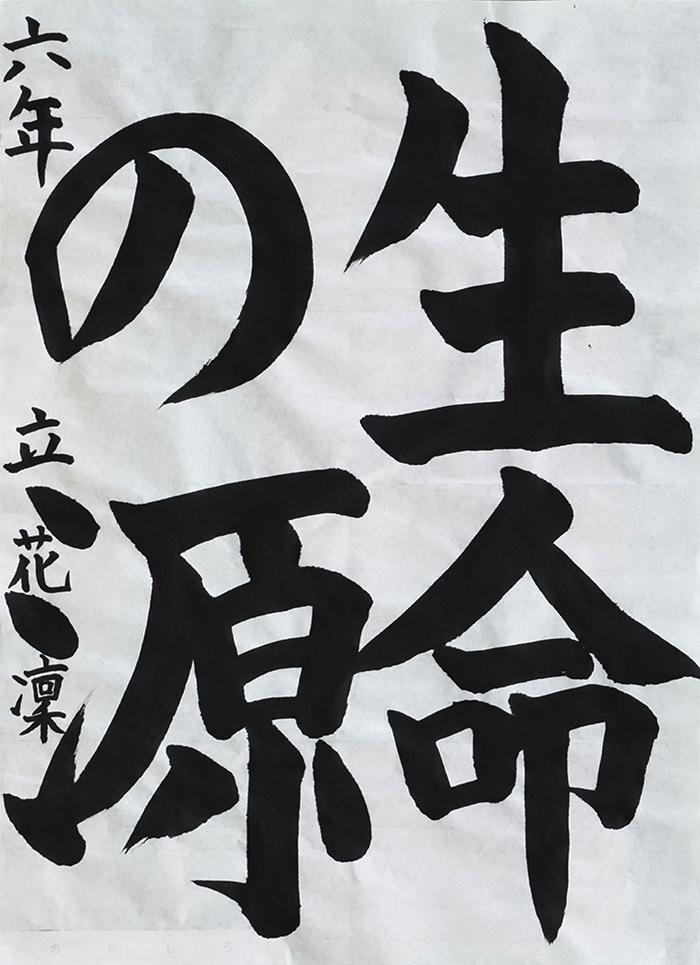 生命
の源
六年 立花凜